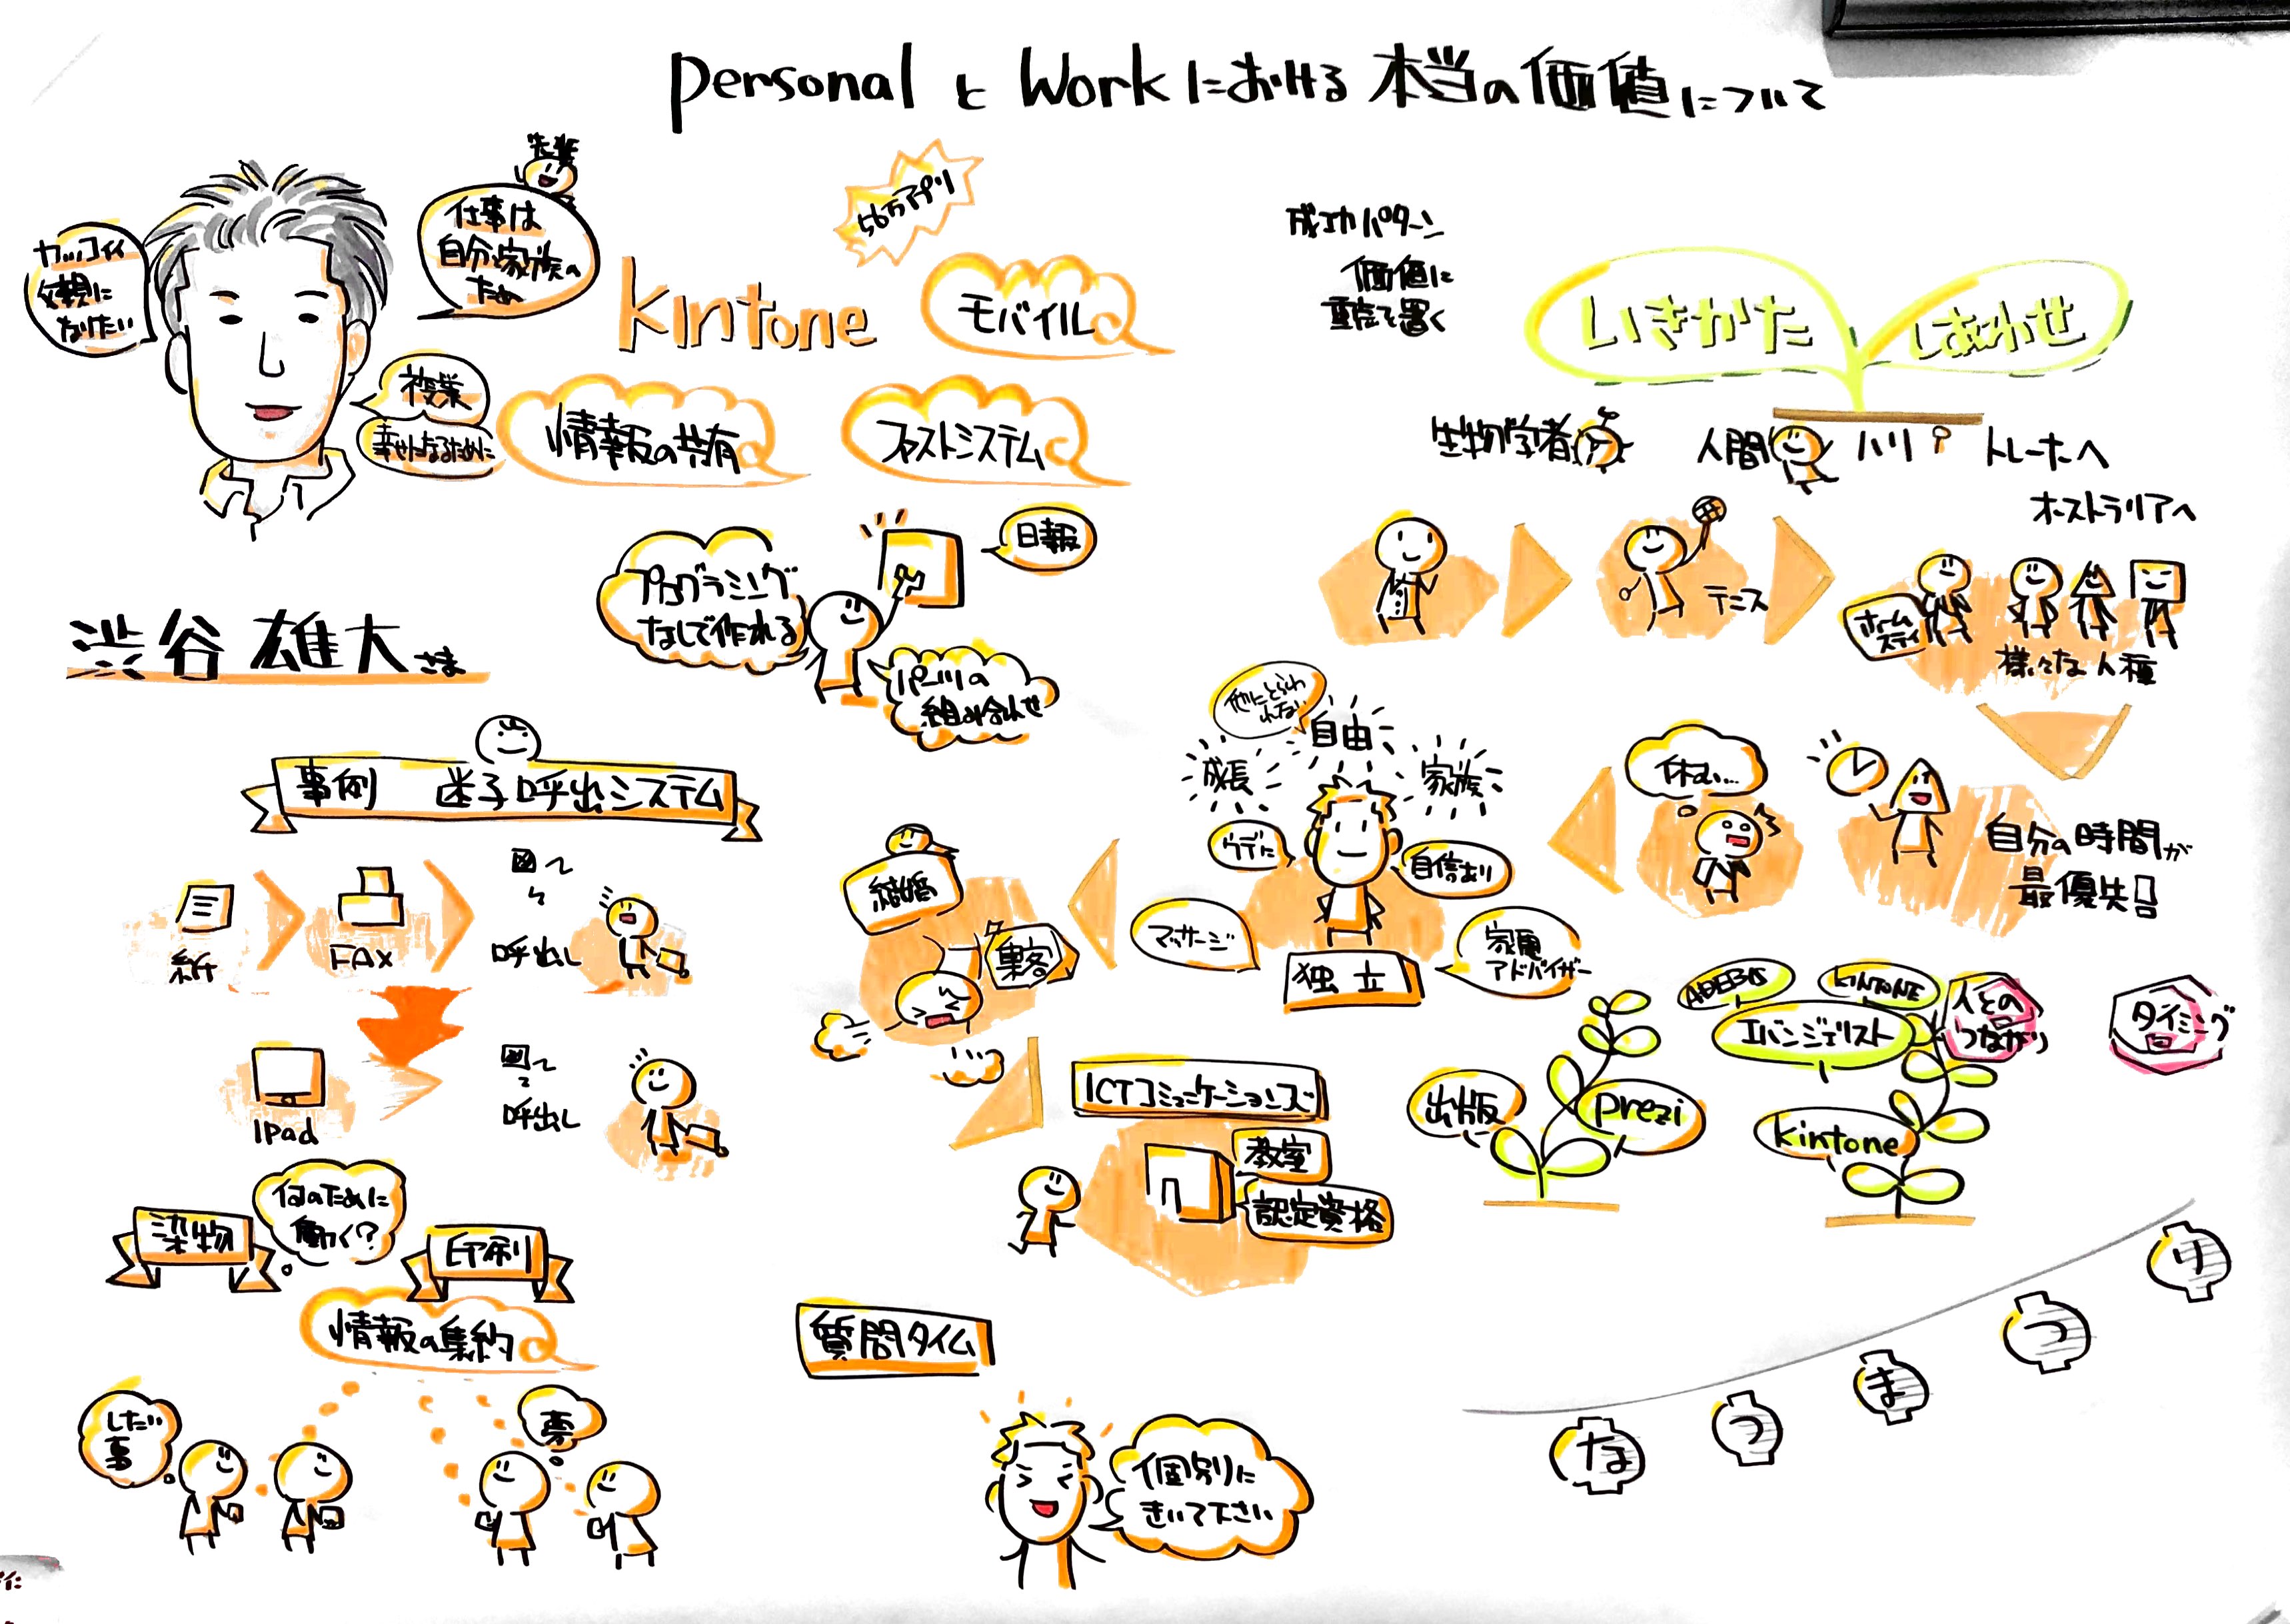 personal と Work における 本当の価値について
先輩
仕事は
自分と家族の
ため
カッコイイ
父親に
なりたい
授業
幸せになるために
56万アプリ
kintone
モバイル
情報の共有
ファストシステム
日報
プログラミング
なしで作れる
パーツの
組み合わせ
渋谷 雄大さま
事例 迷子呼出システム
紙
FAX
呼出し
iPad
呼出し
染物
何のために
働く?
印刷
情報の集約
したい
事
夢
成功パターン
価値に
重点を置く
いきかた
しあわせ
生物学者
人間
ハリ
トレーナーへ
オーストラリアへ
テニス
ホーム
ステイ
様々な人種
自分の時間が
最優先!!
休む…
他にとらわ
れない
自由
成長
家族
ウデに
自信あり
マッサージ
家電
アドバイザー
独立
結婚
集客
ICTコミュニケーションズ
教室
認定資格
出版
prezi
KINTONE
エバンジェリスト
kintone
人との
つながり
タイミング
質問タイム
個別に
きいて下さい
なつまつり